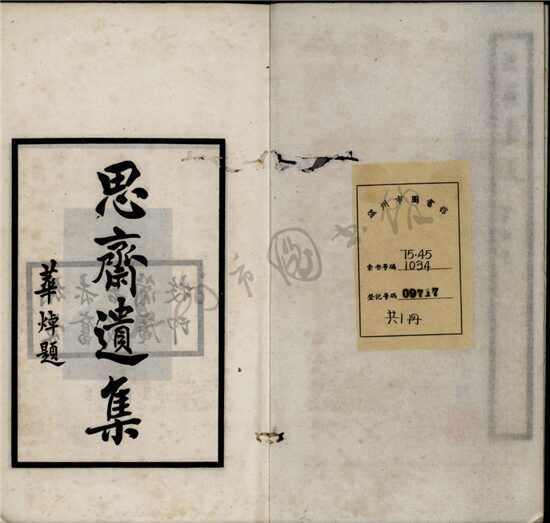 思齋遺集
華焯題
溫州市圖書館
索書號碼 75·45
1034
登記號碼 09717
共1冊